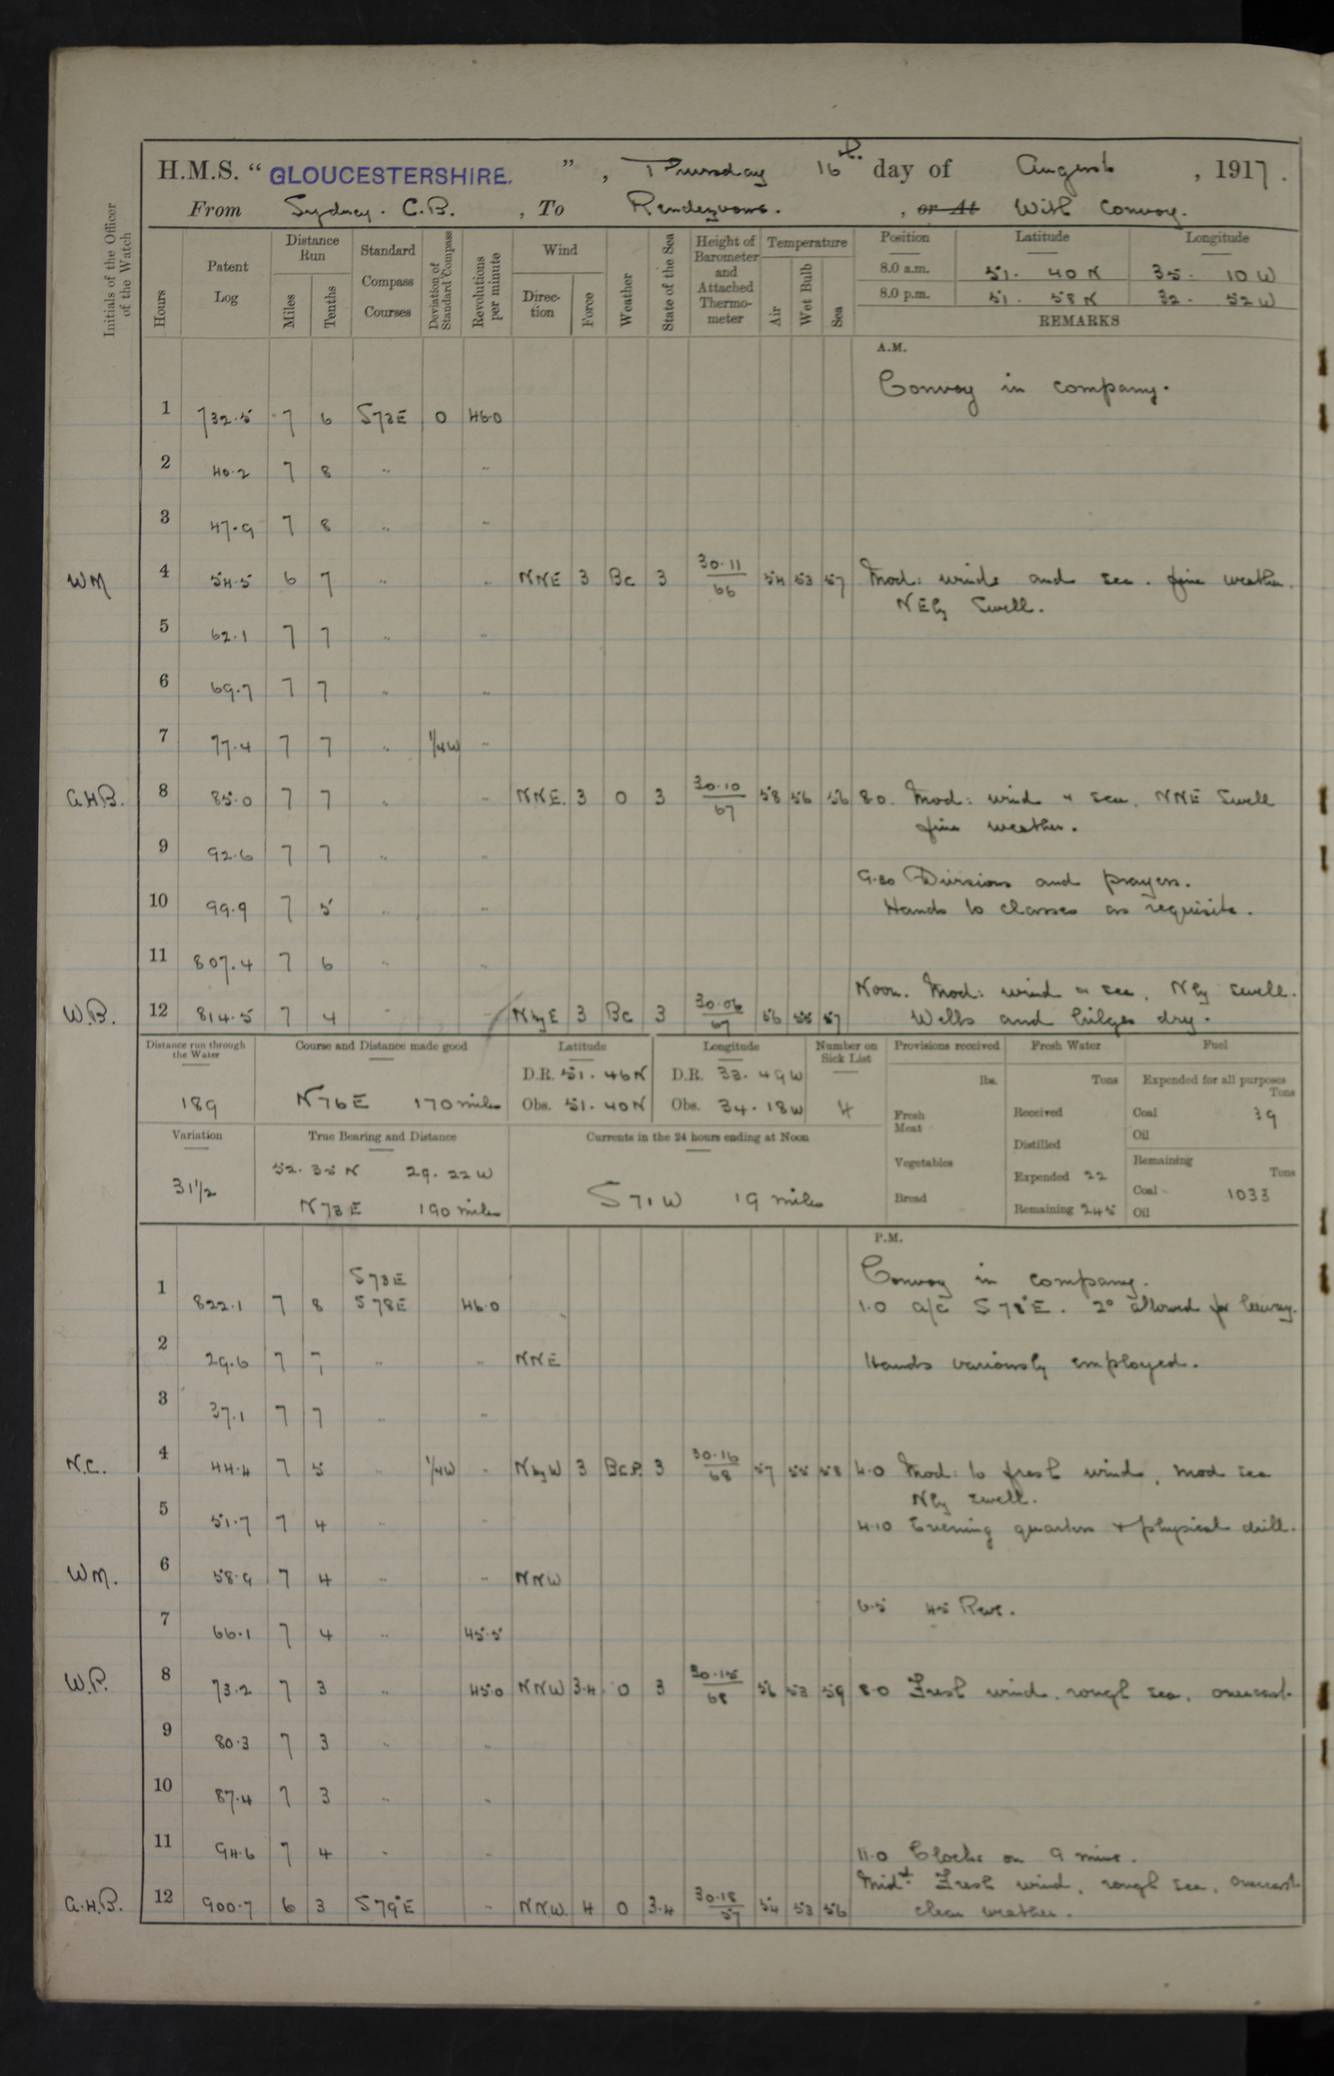 H.M.S. "GLOUCESTERSHIRE.", Thursday 16th day of August, 1917.
From Sydney. C.B., To Rendezvous., or At With Convoy.
Initials of the Officer of the Watch
Hours
Patent Log
Distance Run
Miles
Tenths
Standard Compass Courses
Deviation of Standard Compass
Revolutions per minute
Wind
Direction
Force
Weather
State of the Sea
Height of Barometer and Attached Thermometer
Temperature
Air
Wet Bulb
Sea
Position Latitude Longitude
8.0 a.m. 51. 40 N 35. 10 W
8.0 p.m. 51. 58 N 32. 52 W
REMARKS
A.M.
Convoy in company.
1 732.5 7 6 S73E 0 46.0
2 40.2 7 8 " "
3 47.9 7 8 " "
WM 4 54.5 6 7 " " NNE 3 Bc 3 30.11/66 54 53 57 Mod: winds and sea. fine weather.
NEly Swell.
5 62.1 7 7 " "
6 69.7 7 7 " "
7 77.4 7 7 " 1/4W "
A.H.B. 8 85.0 7 7 " " NNE. 3 0 3 30.10/67 58 56 56 8.0. Mod: wind & sea. NNE Swell
fine weather.
9 92.6 7 7 " "
9.30 Divisions and prayers.
10 99.9 7 5 " " Hands to classes as requisite.
11 807.4 7 6 " "
Noon. Mod: wind & sea, Nly swell.
W.B. 12 814.5 7 4 " " NbyE 3 Bc 3 30.06/67 56 55 57 Wells and bilges dry.
Distance run through the Water 189
Course and Distance made good N76E 170 miles
Latitude D.R. 51. 46N Obs. 51. 40N
Longitude D.R. 33. 49W Obs. 34. 18W
Number on Sick List 4
Variation 31 1/2
True Bearing and Distance 52. 35 N 29. 22 W
N73E 190 miles
Currents in the 24 hours ending at Noon
S71W 19 miles
Provisions received lbs.
Fresh Meat
Vegetables
Bread
Fresh Water Tons
Received
Distilled
Expended 22
Remaining 245
Fuel
Expended for all purposes Tons
Coal 39
Oil
Remaining Tons
Coal 1033
Oil
P.M.
S73E Convoy in company.
1 822.1 7 8 S78E 46.0 1.0 a/c S78°E. 2° allowed for leeway.
2 29.6 7 7 " " NNE Hands variously employed.
3 37.1 7 7 " "
N.C. 4 44.4 7 5 " 1/4W " NbyW 3 BcP. 3 30.16/68 57 55 58 4.0 Mod: to fresh wind, mod sea
Nly swell.
5 51.7 7 4 " " 4.10 Evening quarters & physical drill.
WM. 6 58.9 7 4 " " NNW
6.5 45 Revs.
7 66.1 7 4 " 45.5
W.P. 8 73.2 7 3 " 45.0 NNW 3.4. 0 3 30.15/68 56 53 59 8.0 Fresh wind, rough sea, overcast.
9 80.3 7 3 " "
10 87.4 7 3 " "
11 94.6 7 4 " " 11.0 Clocks on 9 mins.
Midt. Fresh wind, rough sea, overcast
A.H.B. 12 900.7 6 3 S79°E " NNW. 4 0 3.4 30.18/57 54 53 56 clear weather.